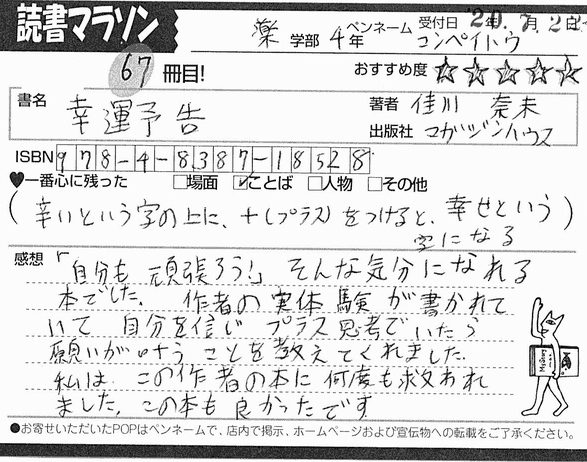 読書マラソン
薬 学部 4年 ペンネーム コンペイトウ 受付日 20.7.22
67冊目!
おすすめ度 ☆☆☆☆☆
書名 幸運予告
著者 佳川 奈未
出版社 マガジンハウス
ISBN 978-4-8387-18528
♥一番心に残った □場面 ☑ことば □人物 □その他
(辛いという字の上に、+(プラス)をつけると、幸せという
字になる)
感想 「自分も頑張ろう!」そんな気分になれる
本でした。作者の実体験が書かれて
いて 自分を信じ プラス思考でいたら
願いが叶うことを教えてくれました。
私は この作者の本に何度も救われ
ました。この本も良かったです
Mystery
●お寄せいただいたPOPはペンネームで、店内で掲示、ホームページおよび宣伝物への転載をご了承ください。